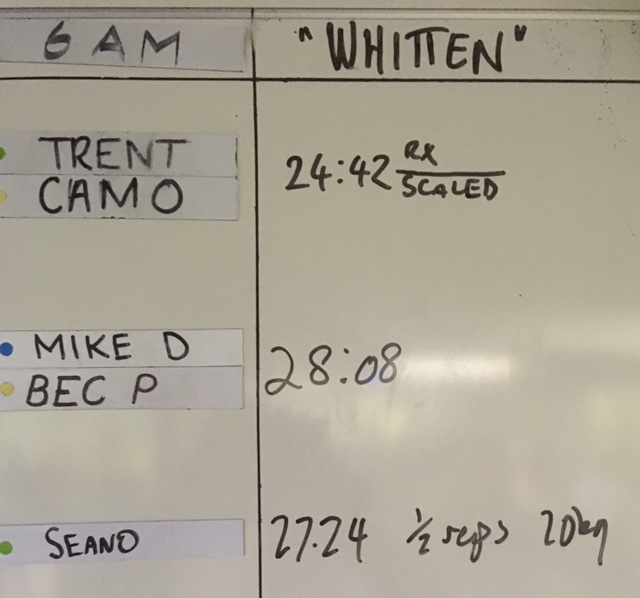 6 AM "WHITTEN"
TRENT
CAMO
24:42 RX
SCALED
MIKE D
BEC P
28:08
SEANO 27.24 ½ reps 20kg